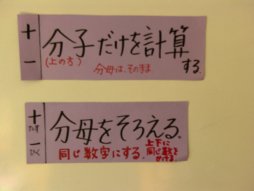 十
一
分子だけを計算
する
(上の方)
分母は、そのまま
十
一
分母をそろえる。
同じ数字にする。
上下に
同じ数を